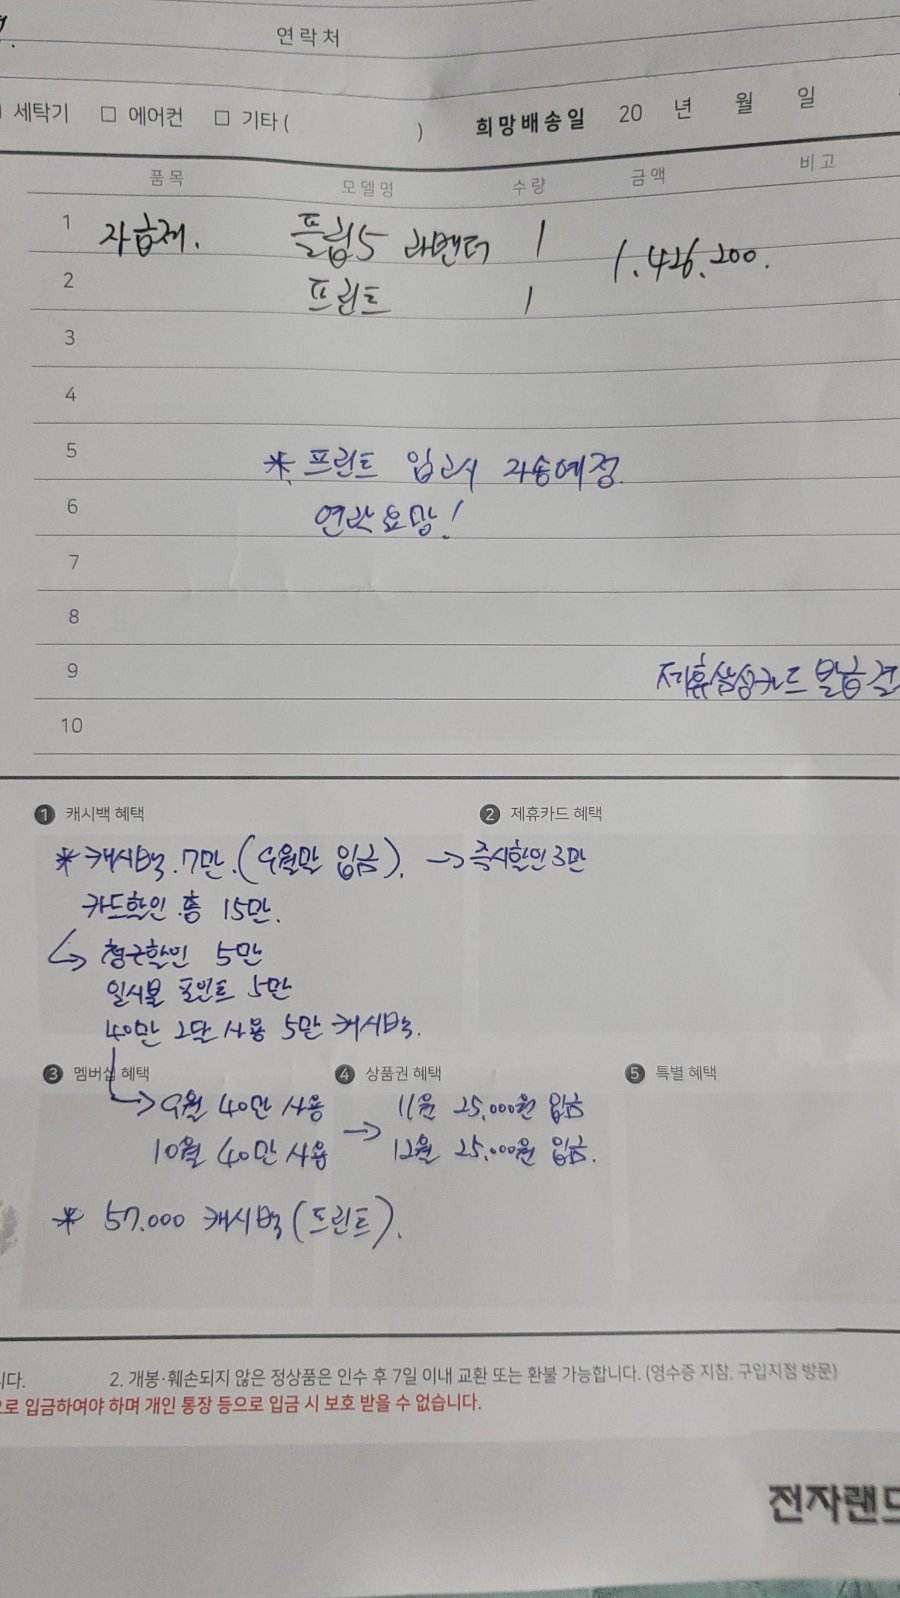 연락처
세탁기 □ 에어컨 □ 기타 ( ) 희망배송일 20 년 월 일
품목 모델명 수량 금액 비고
1 자급제. 플립5 라벤더 1 1.426.200.
2 프린트 1
3
4
5 * 프린트 입고시 자송예정.
6 연락요망!
7
8
9 제휴삼성카드 발급건
10
1 캐시백 혜택
* 캐시백. 7만. (9월말 입금). → 즉시할인 3만
카드할인 총 15만.
↳ 청구할인 5만
일시불 포인트 5만
40만 2달 사용 5만 캐시백.
2 제휴카드 혜택
3 멤버십 혜택
↳ 9월 40만 사용
10월 40만 사용 →
4 상품권 혜택
11월 25,000원 입금
12월 25,000원 입금.
5 특별 혜택
* 57.000 캐시백 (프린트).
니다. 2. 개봉·훼손되지 않은 정상품은 인수 후 7일 이내 교환 또는 환불 가능합니다. (영수증 지참, 구입지점 방문)
으로 입금하여야 하며 개인 통장 등으로 입금 시 보호 받을 수 없습니다.
전자랜드